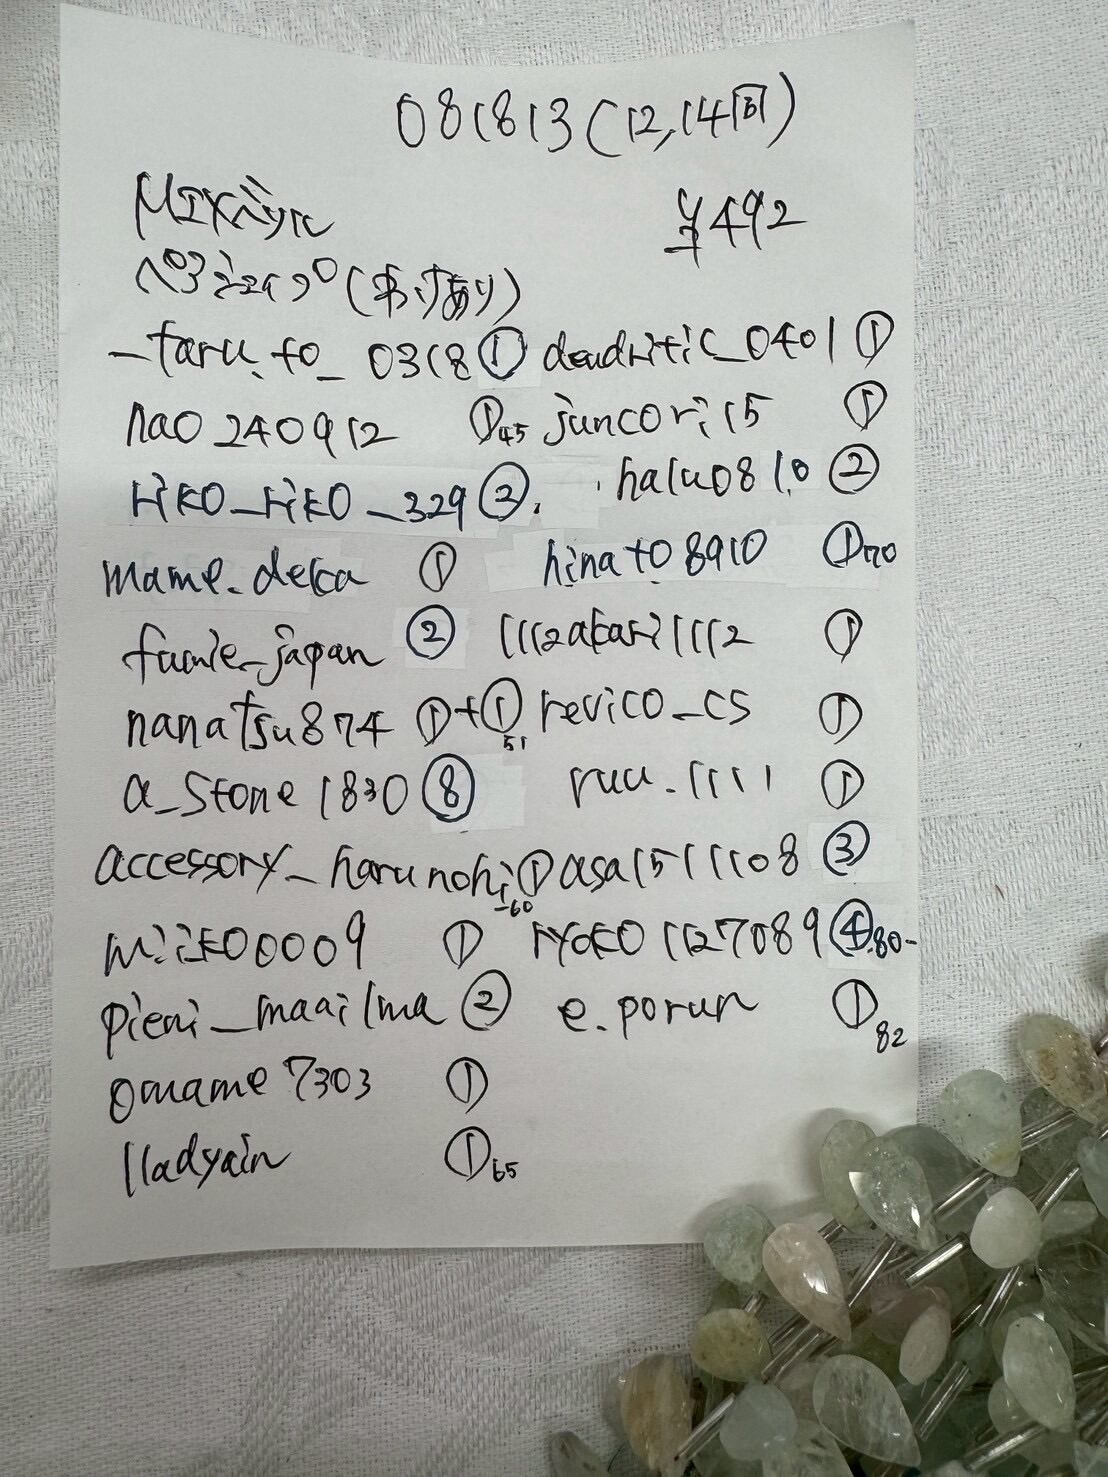 081813(12,14回)
MIXベリル ¥492
ペアシェイプ(訳あり)
_taru.to_0318 ① dendritic_0401 ①
nao240912 ①45 juncori15 ①
riko_riko_329 ③ halu0810 ②
mame.deka ① hinato8910 ①70
fumie_japan ② 1112akari1112 ①
nanatsu874 ①+①51 revico_cs ①
a_stone1830 ⑧ ruu.1111 ①
accessory_harunohi ①-60 asa15111108 ③
miiko0009 ① ryoko1127089 ④80-
pieni_maailma ② e.porun ①82
omame7303 ①
lladyain ①65